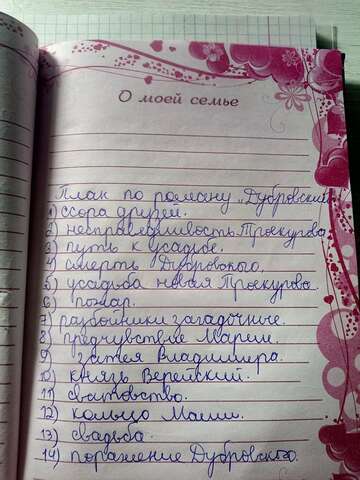 О моей семье
План по роману „Дубровский"
1) ссора друзей.
2) несправедливость Троекурова
3) путь к усадьбе.
4) смерть Дубровского.
5) усадьба новая Троекурова.
6) пожар.
7) разбойники загадочные.
8) предчувствие Марии.
9) затея Владимира.
10) князь Верейский.
11) сватовство.
12) кольцо Маши.
13) свадьба.
14) поражение Дубровского.